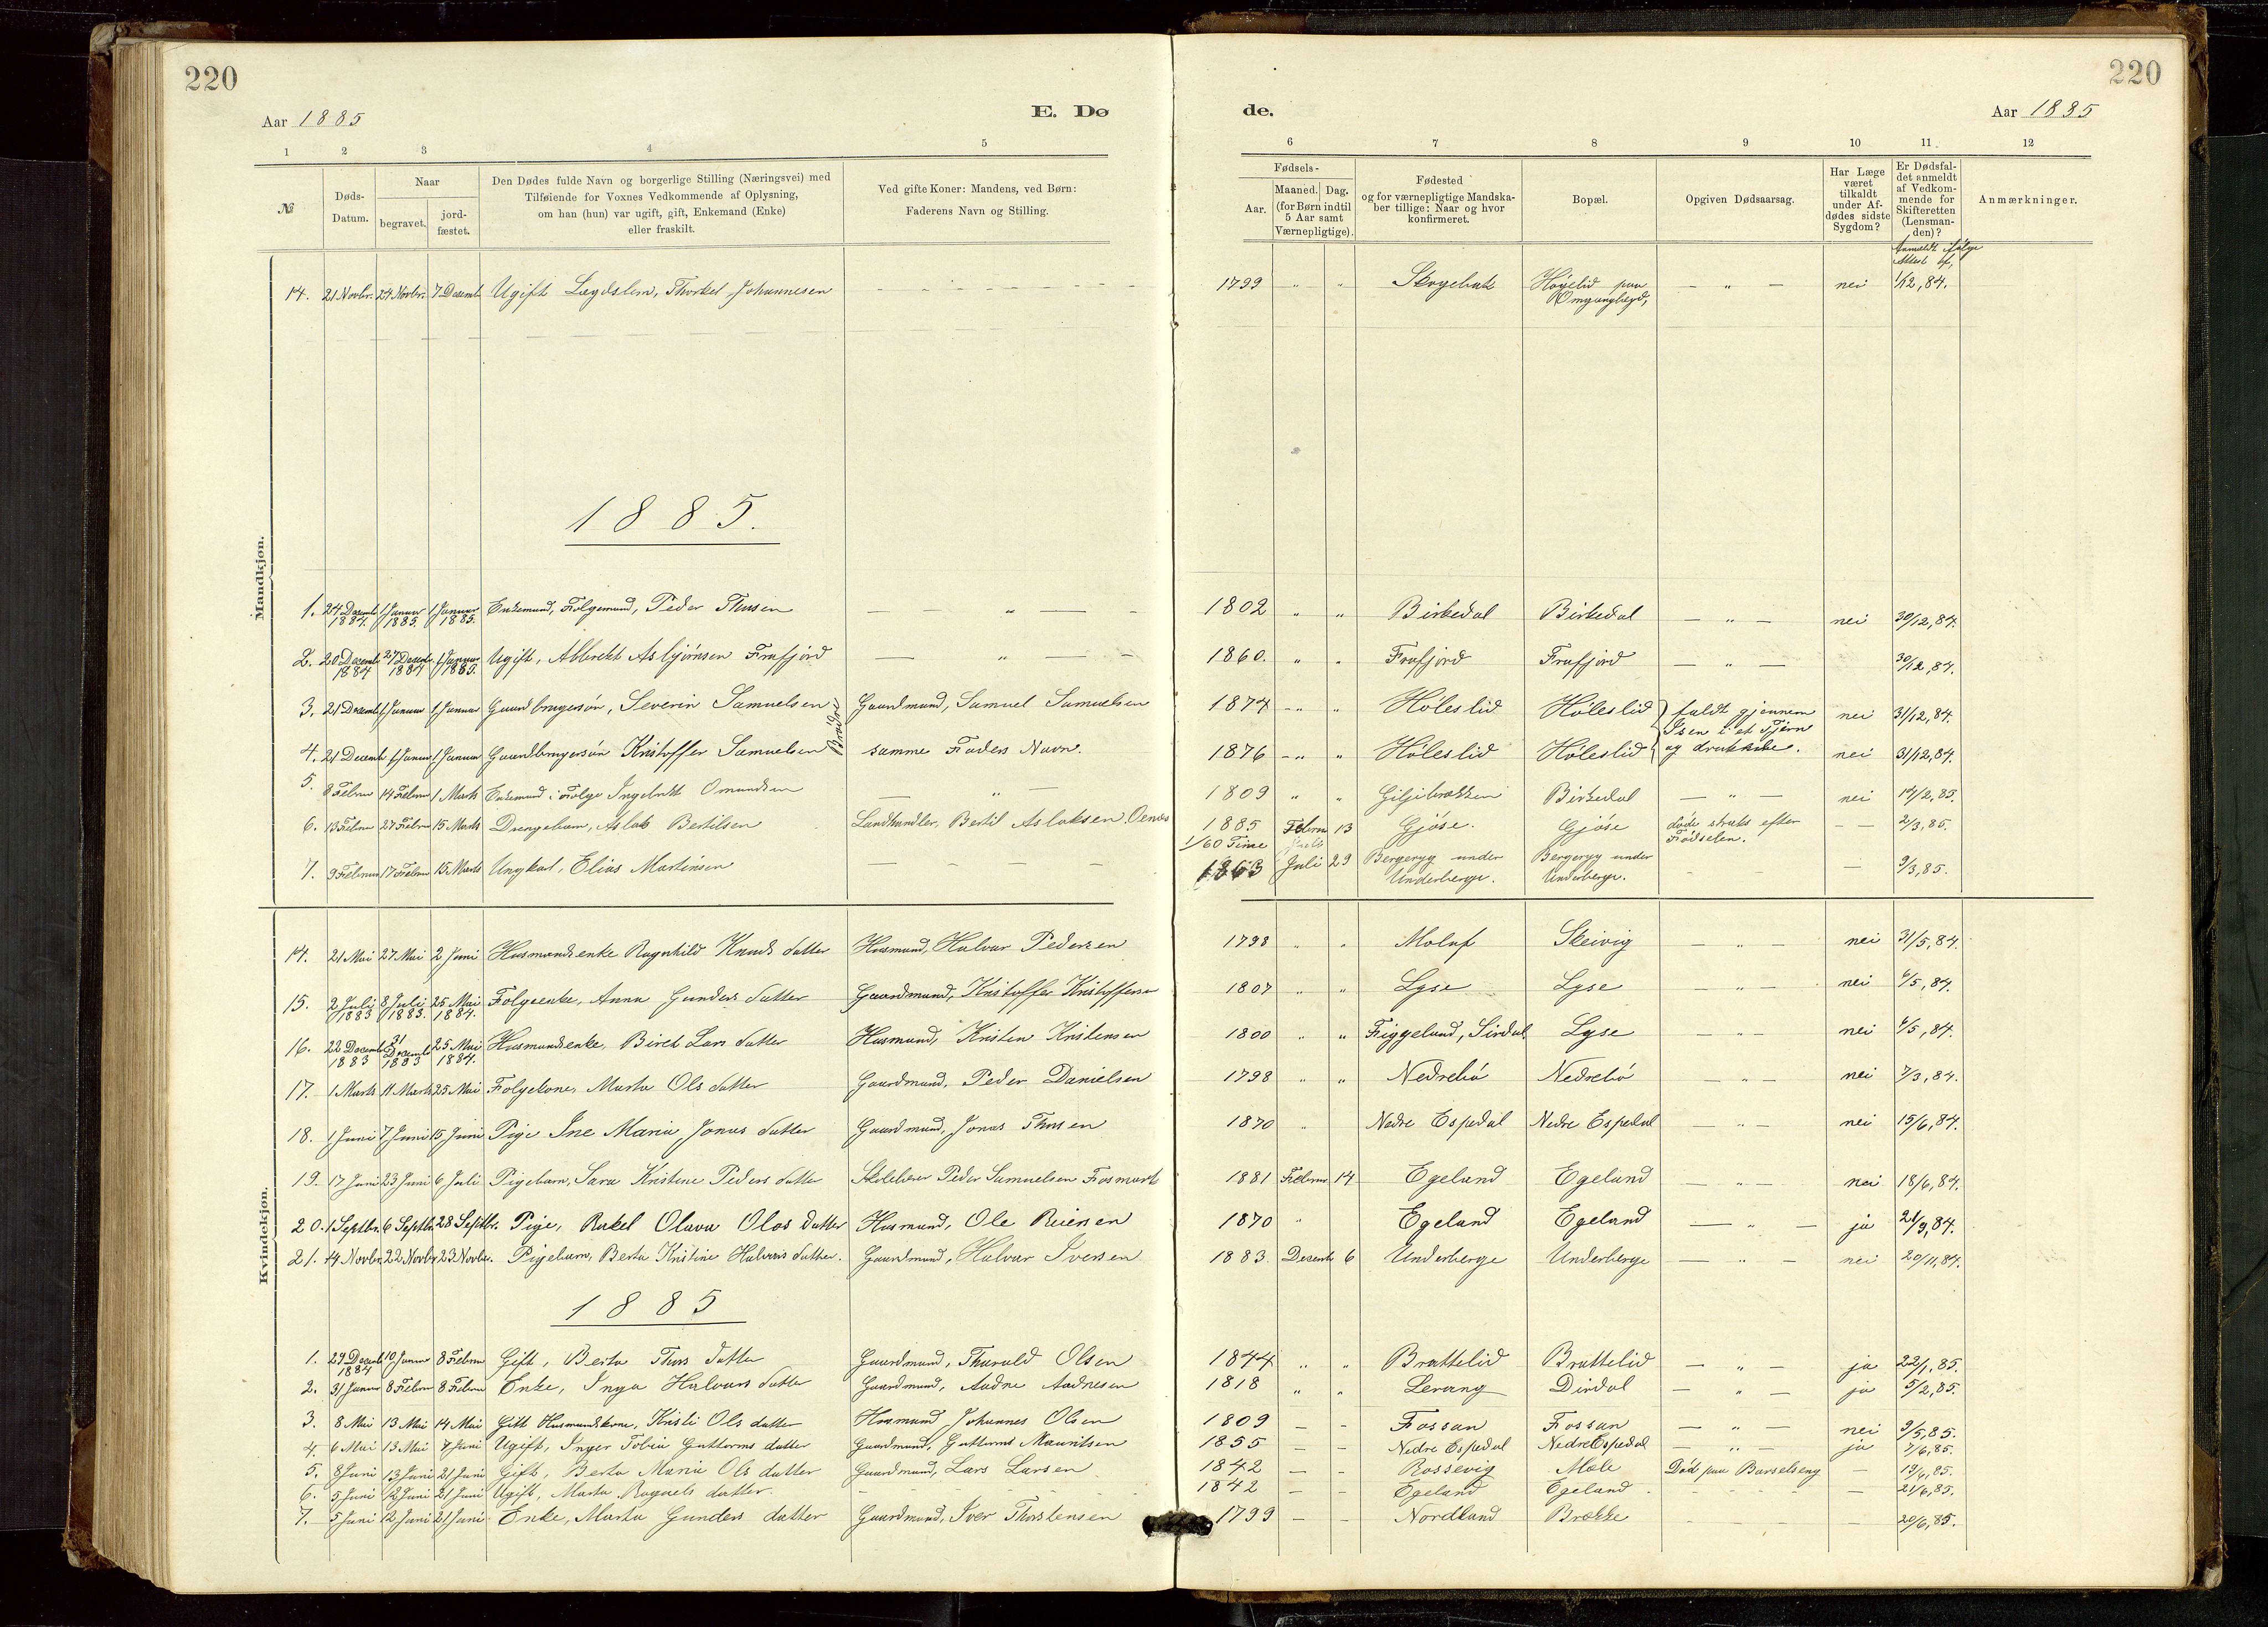 220
220
Aar 1885
E. Dø
de.
Aar 1885
1 2 3 4 5 6 7 8 9 10 11 12
№
Døds-
Datum.
Naar
begravet.
jord-
fæstet.
Den Dødes fulde Navn og borgerlige Stilling (Næringsvei) med
Tilføiende for Voxnes Vedkommende af Oplysning,
om han (hun) var ugift, gift, Enkemand (Enke)
eller fraskilt.
Ved gifte Koner: Mandens, ved Børn:
Faderens Navn og Stilling.
Fødsels-
Aar.
Maaned. Dag.
(for Børn indtil
5 Aar samt
Værnepligtige).
Fødested
og for værnepligtige Mandska-
ber tillige: Naar og hvor
konfirmeret.
Bopæl.
Opgiven Dødsaarsag.
Har Læge
været
tilkaldt
under Af-
dødes sidste
Sygdom?
Er Dødsfal-
det anmeldt
af Vedkom-
mende for
Skifteretten
(Lensman-
den)?
Anmærkninger.
Mandkjøn.
Anmeldt ifølge
Attest af,
14. 21 Novbr. 24 Novbr. 7 Decemb. Ugift Lægdslem, Thorkel Johannesen - - " - - 1799 " " Høgelid paa - " - nei 1/12, 84.
Omgangslægd,
1885.
1. 24 Decemb 1884. 1 Januar 1885. 1 Januar 1885. Enkemand, Folgemand, Peder Thorsen — — " — - 1802 " " Birkedal Birkedal — " — nei 30/12, 84.
2. 20 Decemb 1884 27 Decemb. 1884 1 Januar 1885. Ugift, Abbrekt Asbjørnsen Frafjord — " — - 1860. " " Frafjord Frafjord — " — 30/12, 84.
3. 21 Decemb 1 Januar 1 Januar Gaardbrugersøn, Severin Samuelsen Gaardmand, Samuel Samuelsen 1874 - " " Høleslid Høleslid faldt gjennem nei 31/12, 84.
Brødre
Isen i et Tjern
4. 21 Decemb 1 Januar 1 Januar Gaardbrugersøn Kristoffer Samuelsen samme Faders Navn. 1876 - " " Høleslid Høleslid og druknede. nei 31/12, 84.
5. 8 Februar 14 Februar 1 Marts Enkemand i Folge Ingebrett Omundsen — " 1809 " " Giljebrækken Birkedal — " — nei 14/2, 85.
6. 13 Februar 27 Februar 15 Marts Drengebarn, Aslak Bertilsen Landhandler, Bertil Aslaksen Oenes 1885 Februar 13 Gjøse. Gjøse døde straks efter — — 2/3, 85.
1/60 Time
Fødselen.
7. 9 Februar 17 Februar 15 Marts Ungkarl, Elias Martinsen — — — 1863 Juli 29 Bergeryg under Bergeryg under — 9/3, 85.
Underberge. Underberge.
Kvindekjøn.
14. 21 Mai 27 Mai 2 Juni Husmandsenke Ragnhild Knuds datter Husmand, Halvar Pedersen 1798 " " Molaf Skeivig — " — nei 31/5, 84.
15. 2 Juli 1883 8 Juli 1883. 25 Mai 1884. Folgeenke, Anna Gunders datter Gaardmand, Kristoffer Kristoffersen 1807 " " Lyse Lyse — " — nei 6/5, 84.
16. 22 Decemb 1883 31 Decemb 1883 25 Mai 1884. Husmandsenke, Biret Lars datter Husmand, Kristen Kristensen 1800 " " Figgeland, Sirdal Lyse — " — nei 6/5, 84.
17. 1 Marts 11 Marts 25 Mai Folgekone, Marta Ols datter Gaardmand, Peder Danielsen 1798 " " Nedrebø Nedrebø — " — nei 7/3, 84.
18. 1 Juni 7 Juni 15 Juni Pige Ine Maria Jonas datter Gaardmand, Jonas Thorsen 1870 " Nedre Espedal Nedre Espedal — " — nei 15/6, 84.
19. 17 Juni 23 Juni 6 Juli Pigebarn, Sara Kristine Peders datter Skolelærer Peder Samuelsen Fosmark 1881 Februar 14 Egeland Egeland — " — nei 18/6, 84.
20. 1 Septbr. 6 Septbr 28 Septbr. Pige, Rakel Olava Olas datter Husmand, Ole Reiersen 1870 " Egeland Egeland — " — ja 21/9, 84.
21. 14 Novbr. 22 Novbr 23 Novbr. Pigebarn, Berta Kristine Halvars datter. Gaardmand, Halvar Iversen 1883. Decemb 6 Underberge Underberge — " — nei 20/11, 84.
1885
1. 29 Decemb 1884 10 Januar 8 Februar Gift, Berta Thors datter Gaardmand, Tharald Olsen 1844 " " Brattelid Brattelid — " — ja 22/1, 85.
2. 31 Januar 8 Februar 8 Februar Enke, Inga Halvars datter Gaardmand, Aadne Aadnesen 1818 " " Levang Dirdal — " — ja 5/2, 85.
3. 8 Mai 13 Mai 14 Mai Gift Husmandskone, Kristi Ols datter Husmand Johannes Olsen 1809 — - Fossan Fossan — " — nei 9/5, 85.
4. 6 Mai 13 Mai 7 Juni Ugift, Inger Tobia Guttorms datter Gaardmand, Guttorm Mauritsen 1855 — - Nedre Espedal Nedre Espedal — " — ja 7/6, 85.
5. 8 Juni 13 Juni 21 Juni Gift, Berta Maria Ols datter Gaardmand, Lars Larsen 1842 — - Rossevig Mæle Død paa Barselseng — 19/6, 85.
6. 5 Juni 12 Juni 21 Juni Ugift, Marta Ragnels datter. 1842 — - Egeland Egeland — 21/6, 85.
7. 5 Juni 12 Juni 21 Juni Enke, Marta Gunders datter Gaardmand, Iver Thorstensen 1799 — - Nordland Brække — 20/6, 85.